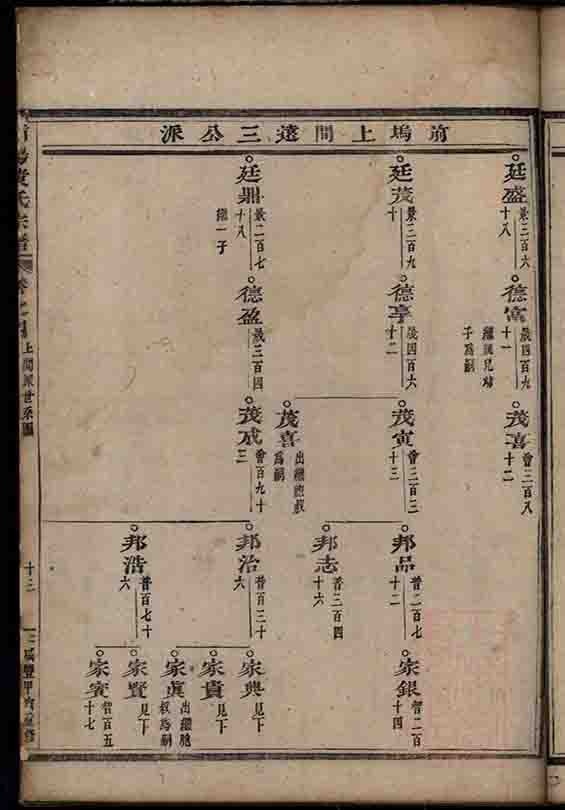 前塢上間遠三公派
廷盛
景三百六
十八
德富
歲四百九
十一
子為嗣
茂喜
曾三百八
十二
廷茂
景三百九
十
德亨
歲四百六
十二
茂寅
曾三百三
十三
茂喜
出繼
為嗣
邦品
普二百七
十二
邦志
普三百四
十六
家銀
智二百
十四
廷鼎
景二百七
十八
繼一子
德盈
歲三百四
茂成
曾百九十
三
邦治
普百三十
六
邦浩
普百七十
六
家典
見下
家貴
見下
家真
出繼胞
叔為嗣
家賢
見下
家賓
智百五
十七
氏宗譜
上間派世系圖
十三
咸豐甲寅重修